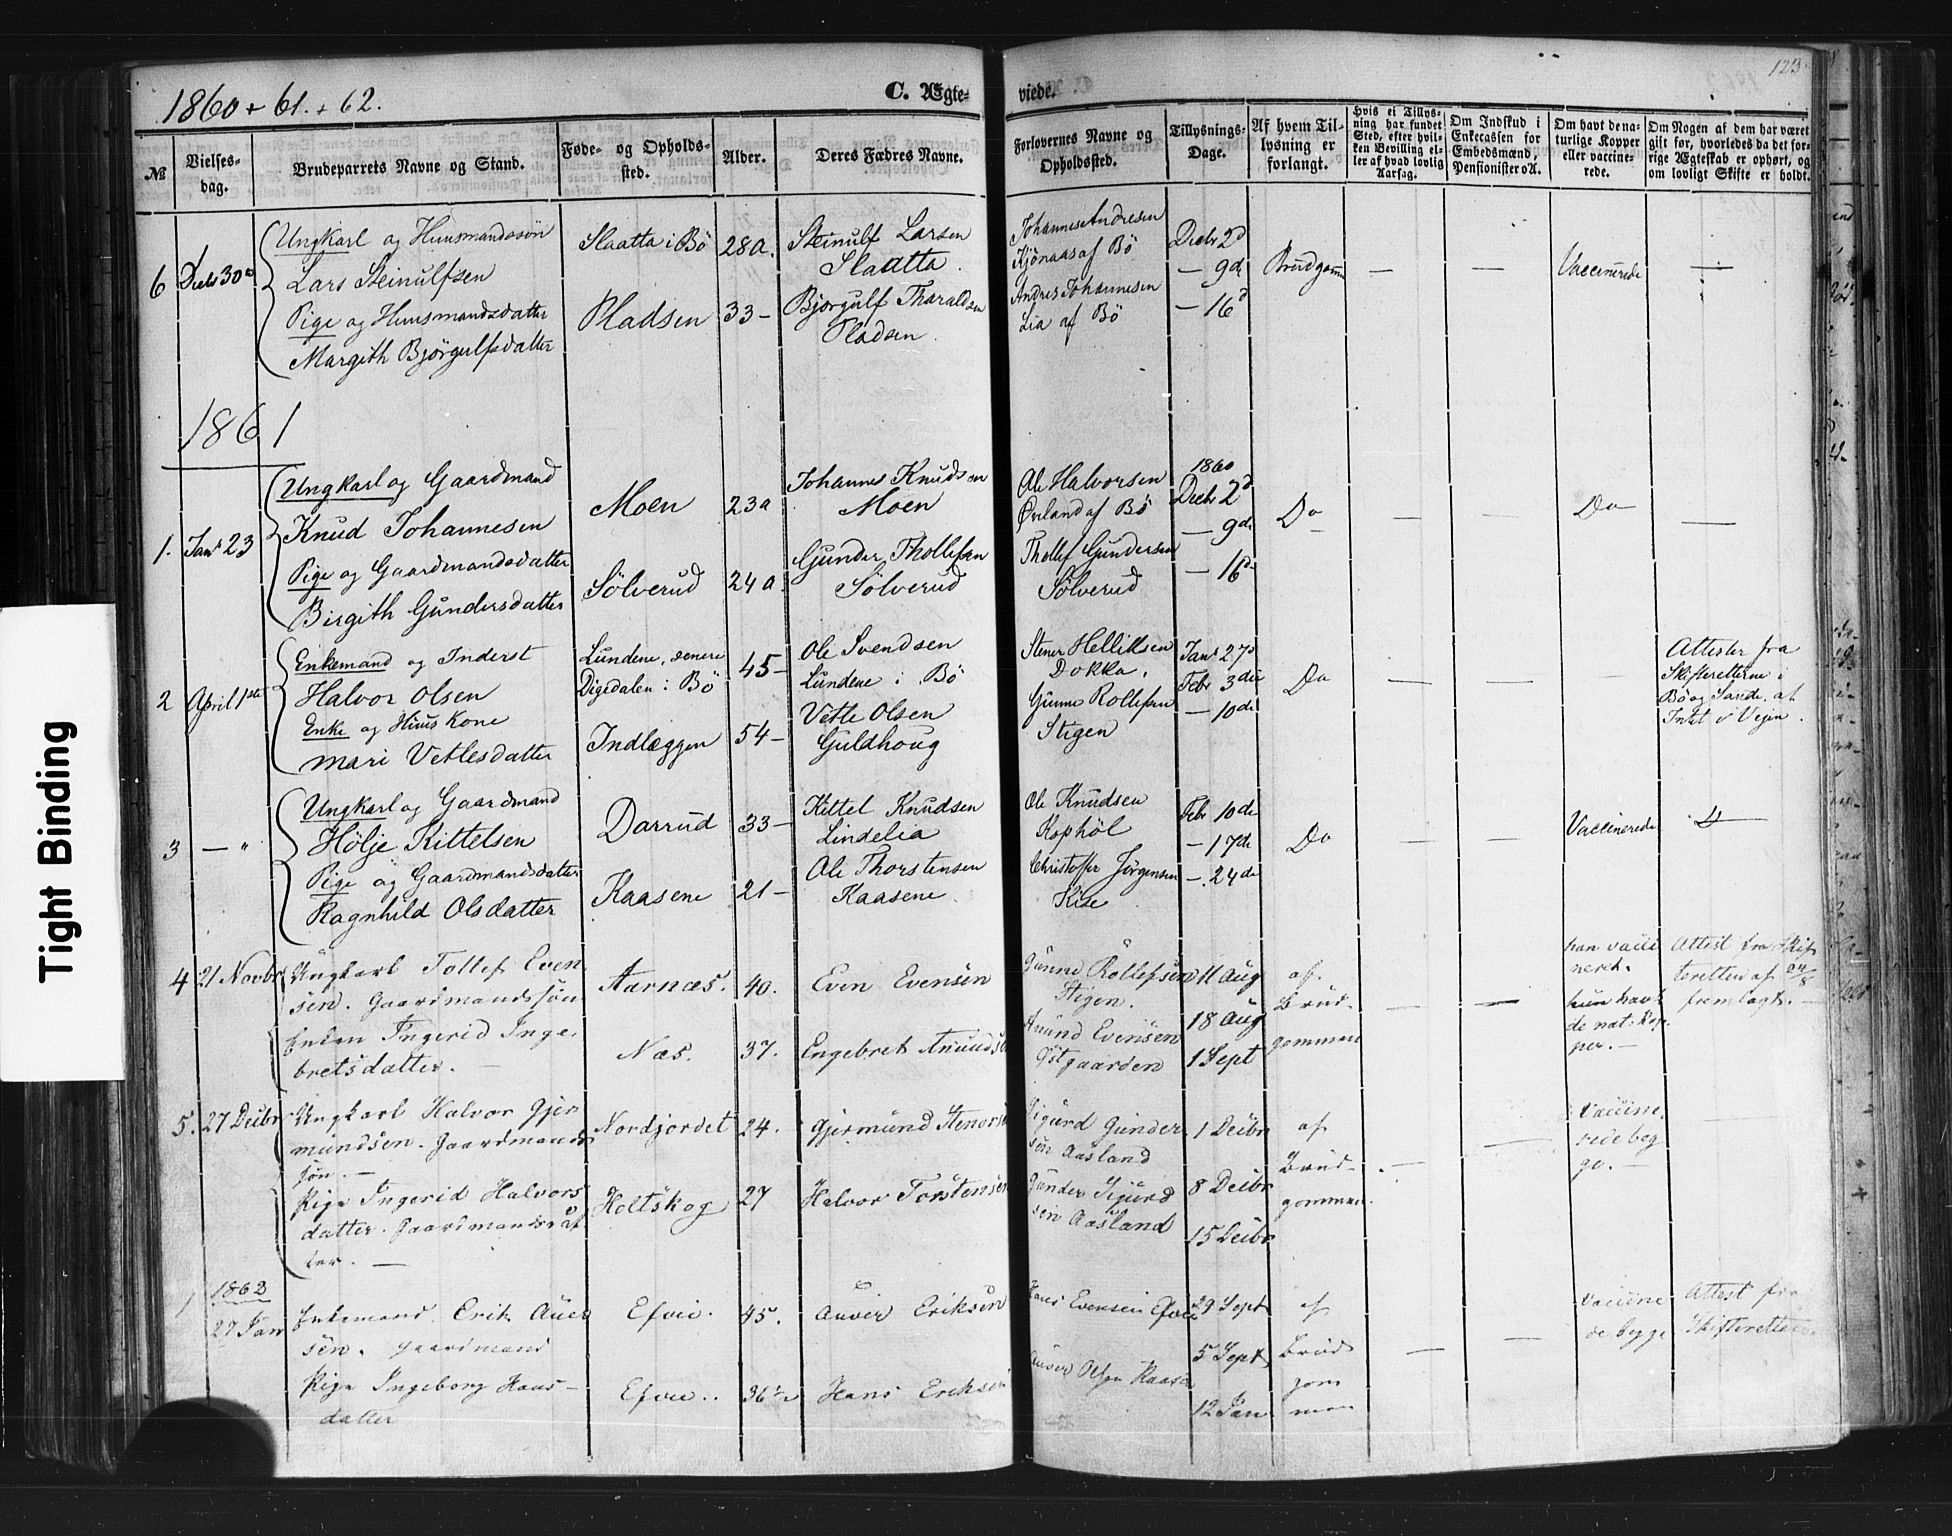 1860 + 61. + 62.
C. Ægte-
viede.
123
№
Vielses-
dag.
Brudeparrets Navne og Stand.
Føde- og Opholds-
sted.
Alder.
Deres Fædres Navne.
Forlovernes Navne og
Opholdssted.
Tillysnings-
Dage.
Af hvem Til-
lysning er
forlangt.
Hvis ei Tillys-
ning har fundet
Sted, efter hvil-
ken Bevilling el-
ler af hvad lovlig
Aarsag.
Om Indskud i
Enkecassen for
Embedsmænd,
Pensionister o A.
Om havt de na-
turlige Kopper
eller vaccine-
rede.
Om Nogen af dem har været
gift før, hvorledes da det for-
rige Ægteskab er ophørt, og
om lovligt Skifte er holdt.
6
Decbr 30te
Ungkarl og Huusmandssön
Lars Steinulfsen
Pige og Huusmandsdatter
Margith Bjørgulfsdatter
Slaatta i Bö
Pladsen
28 a.
33 -
Steinulf Larsen
Slaatta
Bjørgulf Tharaldsen
Pladsen
Johannes Andresen
Kjönaas af Bö
Andres Johannesen
Lia af Bö
Decbr 2d
- 9de
- 16d
Brudgom
-
-
Vaccinerede
-
1861
1.
Janr 23
Ungkarl og Gaardmand
Knud Johannesen
Pige og Gaardmandsdatter
Birgith Gundersdatter
Moen
Sölverud
23 a
24 a.
Johannes Knudsen
Moen
Gunder Thollefsen
Sölverud
Ole Halvorsen
Ørland af Bö
Thollef Gundersen
Sölverud
1860
Decbr 2d
- 9de
- 16d
Do
-
-
Do
-
2
April 1ste
Enkemand og Inderst
Halvor Olsen
Enke og Huuskone
Mari Vetlesdatter
Lundene, senere
Digedalen i Bö
Indlæggen
45 -
54 -
Ole Svendsen
Lundene i Bö
Vetle Olsen
Guldhoug
Stener Helliksen
Dokka.
Gunne Rollefsen
Stigen
Janr 27d
Febr 3die
- 10de
Do
-
-
-
Attester fra
Skifteretterne i
Bö og Sande, at
Intet i Vejen.
3
- "
Ungkarl og Gaardmand
Hölje Kittelsen
Pige og Gaardmandsdatter
Ragnhild Olsdatter
Darrud
Kaasene
33 -
21 -
Kittel Knudsen
Lindelia
Ole Thorstensen
Kaasene
Ole Knudsen
Kophöl
Christoffer Jörgensen
Kise
Febr 10de
- 17de
- 24de
Do
-
-
Vaccinerede
4
21 Novbr
Ungkarl Tollef Even
sen. Gaardmandssön
Enken Ingerid Inge-
bretsdatter. -
Aarnæs.
Næs.
40.
37.
Even Evensen
Engebret Anunds
Gunne Rollefsen
Stigen.
Anund Evensen
Østgaarden
11 Aug
18 Aug
1 Sept
af
Brud-
gommen
-
-
han vacci
neret.
hun havt
de nat: Kop-
per. -
Attest fra Skif
teretten af
fremlagt. -
5.
27 Decbr
Ungkarl Halvor Gjer
mundsen. Gaardmands
sön. -
Pige Ingerid Halvors
datter. Gaardmandsdat
ter. -
Nordjordet
Holtskog
24.
27
Gjermund Steners
Halvor Torstensen
Sigurd Gunder
sen Aasland
Gunder Sigurd
sen Aasland
1 Decbr
8 Decbr
15 Decbr
af
Brud-
gommen.
-
-
Vaccine
rede beg
ge. -
1
1862
27 Jan
Enkemand Erik Auver
sen. Gaardmand
Pige Ingeborg Hans-
datter
Efvie.
Efvie.
45.
36 1/2
Auver Eriksen
Hans Eriksen
Hans Evensen Efvie
Auver Olsen Kaasa
29 Sept
5 Sept
12 Jan
af
Brud
gom
men
-
-
vaccine
de begge
Attest fra
Skifteretten.
Tight Binding